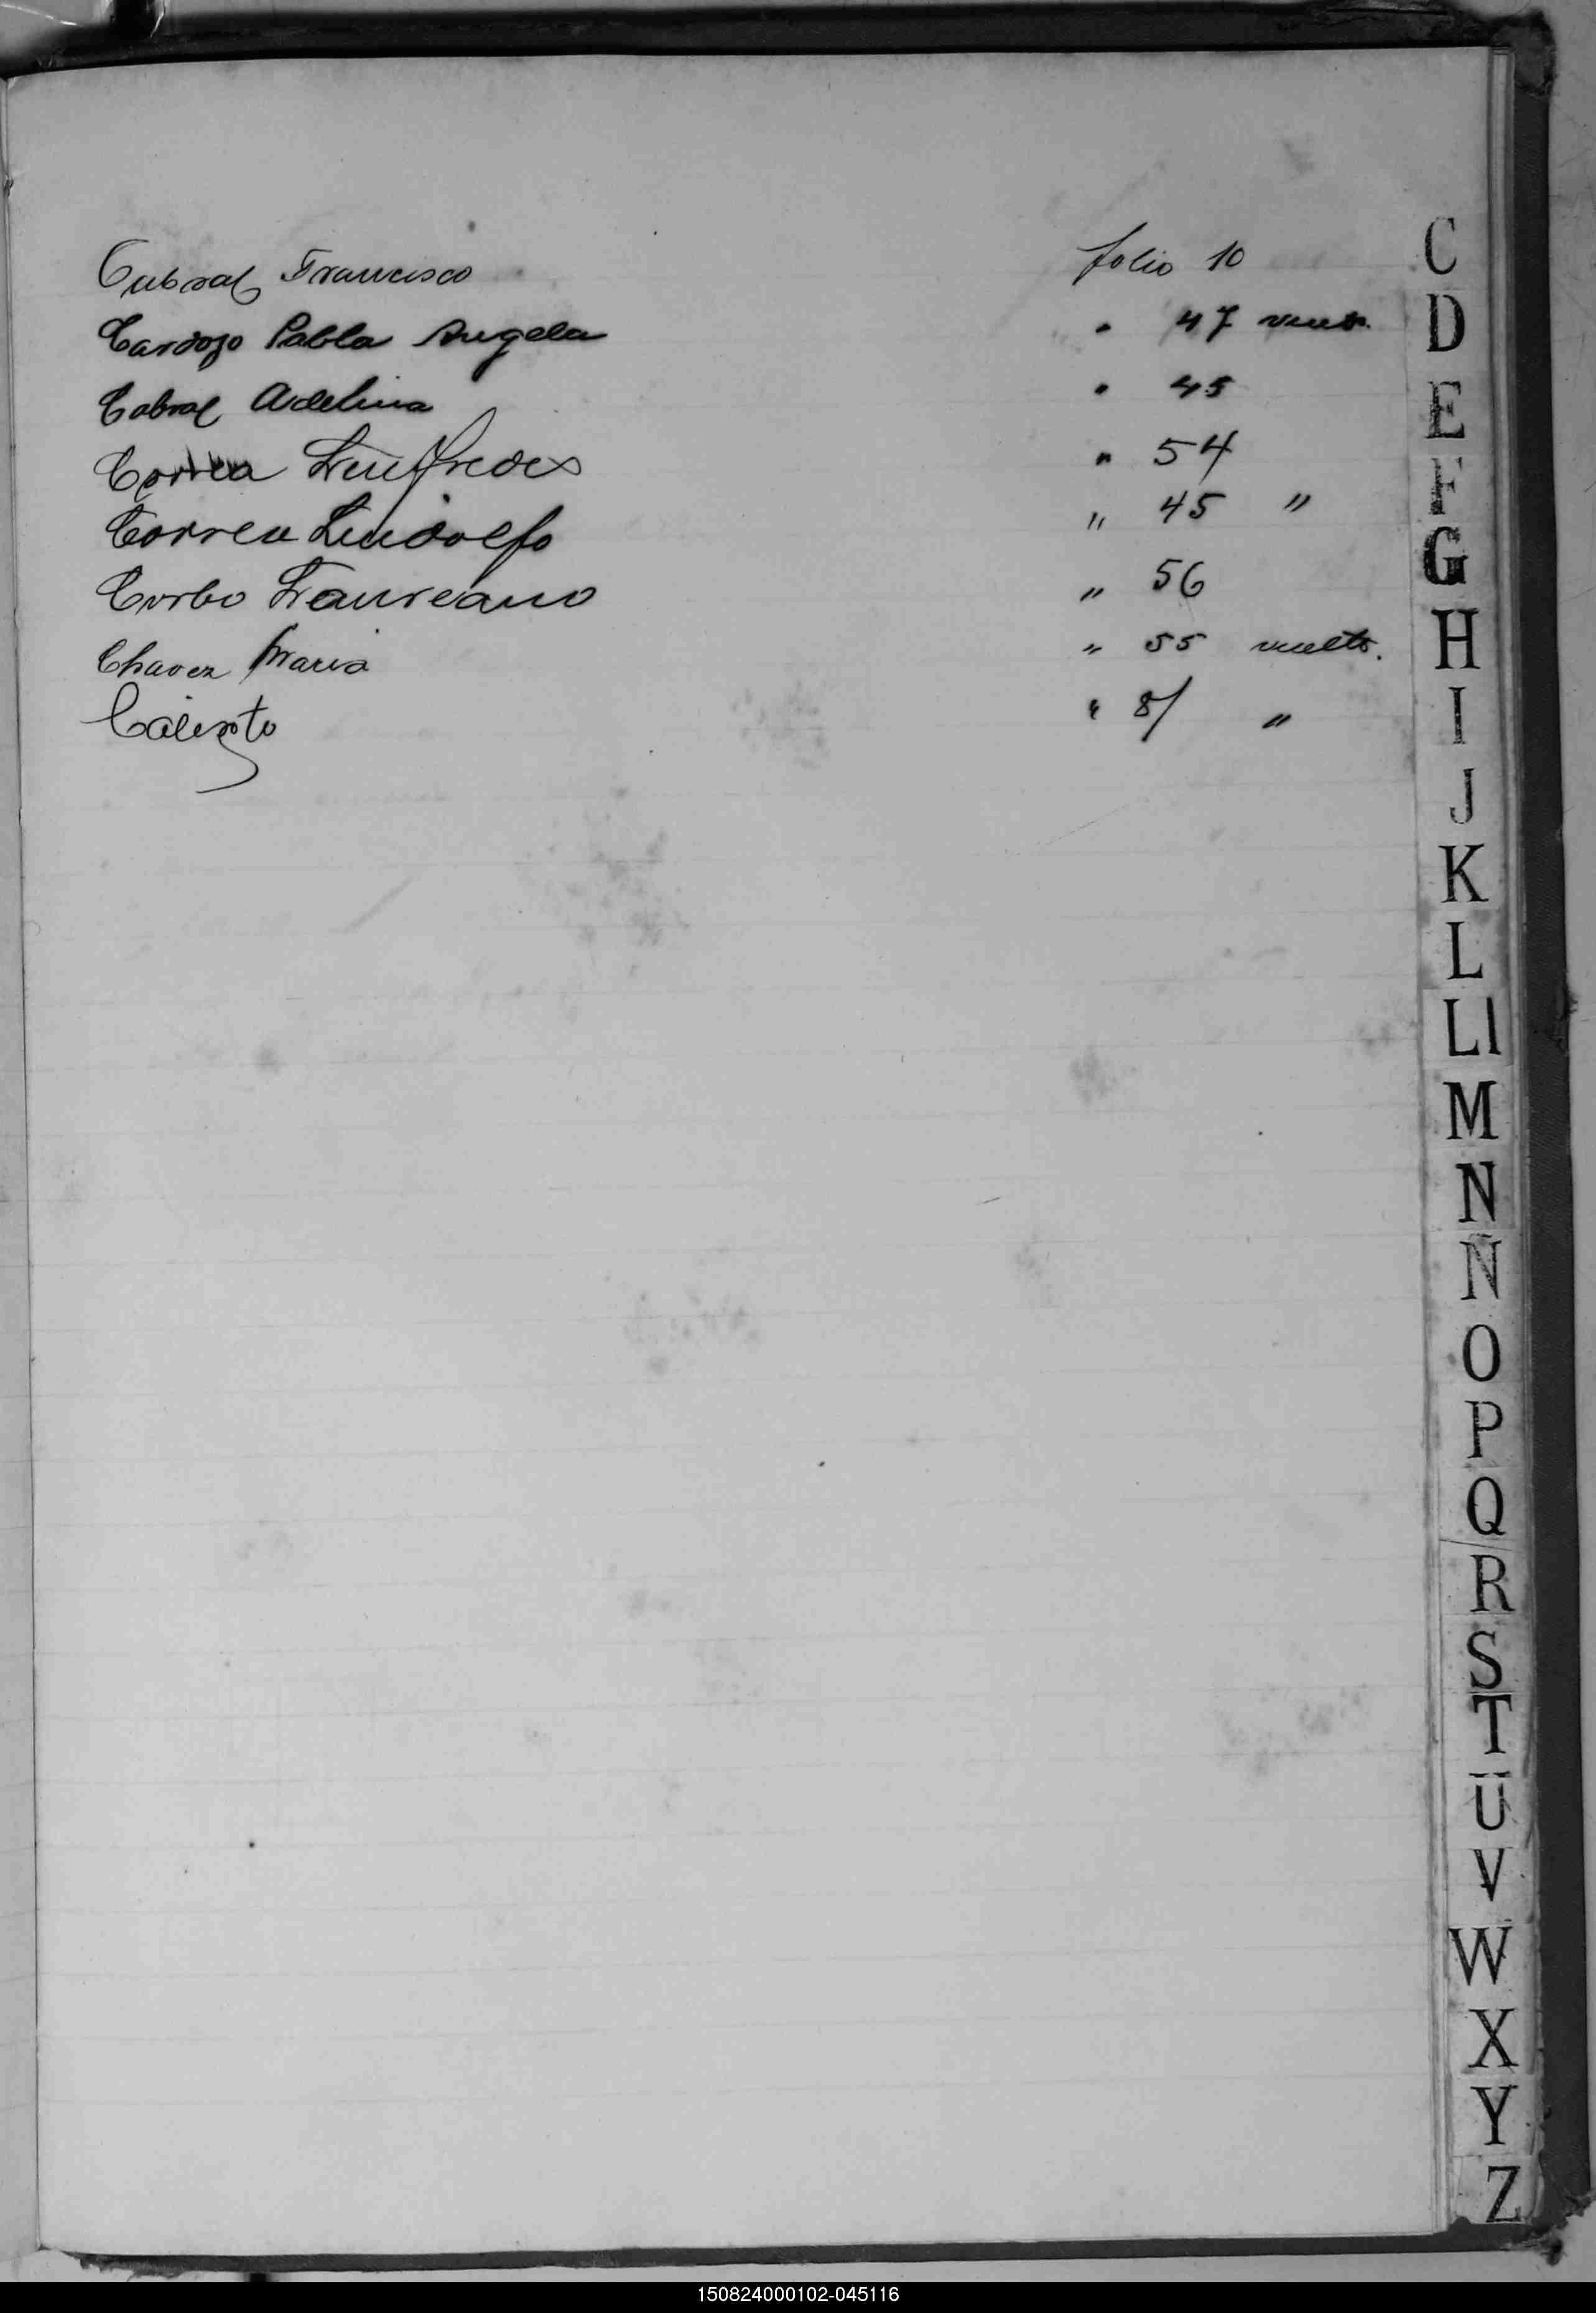 Cabral Francisco folio 10
Cardozo Pabla Angela " 47 vuelt.
Cabral Adelina " 45
Correa " 54
Correa Lindolfo " 45 "
Corbo Laureano " 56
Chavez Maria " 55 vuelto.
Calixto " 8/ "
C
D
E
F
G
H
I
J
K
L
Ll
M
N
N
O
P
Q
R
S
T
U
V
W
X
Y
Z
150824000102-045116